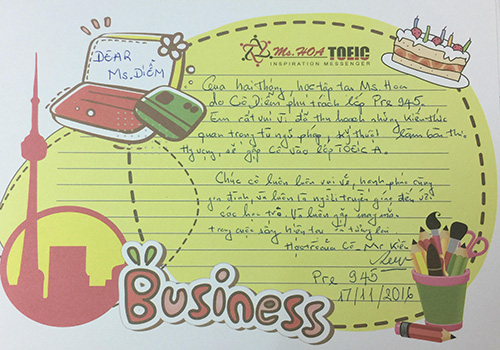 DEAR
Ms. DIỄM
Ms. HOA TOEIC
INSPIRATION MESSENGER
Qua hai tháng, học tập tại Ms. Hoa
do Cô Diễm phụ trách lớp Pre 945.
Em rất vui vì đã thu hoạch những kiến thức
quan trọng từ ngữ pháp, kỹ thuật làm bài thi
Hy vọng, sẽ gặp Cô vào lớp TOEIC A.
Chúc cô luôn luôn vui vẻ, hạnh phúc cùng
gia đình và luôn là người truyền giảng đến với
các học trò. Và luôn gặp may mắn
trong cuộc sống hiện tại và tương lai
Học trò của Cô Mr Kiên
Pre 945
17/11/2016
Business